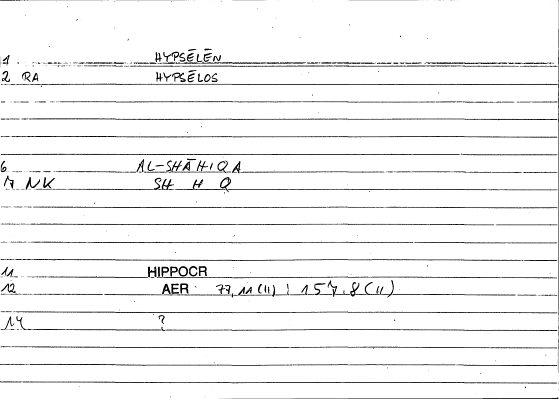 1 HYPSĒLĒN
2 RA HYPSĒLOS
6 AL-SHĀHIQA
17 NK SH H Q
11 HIPPOCR
12 AER 77,11(11) : 157.8(11)
14 ?